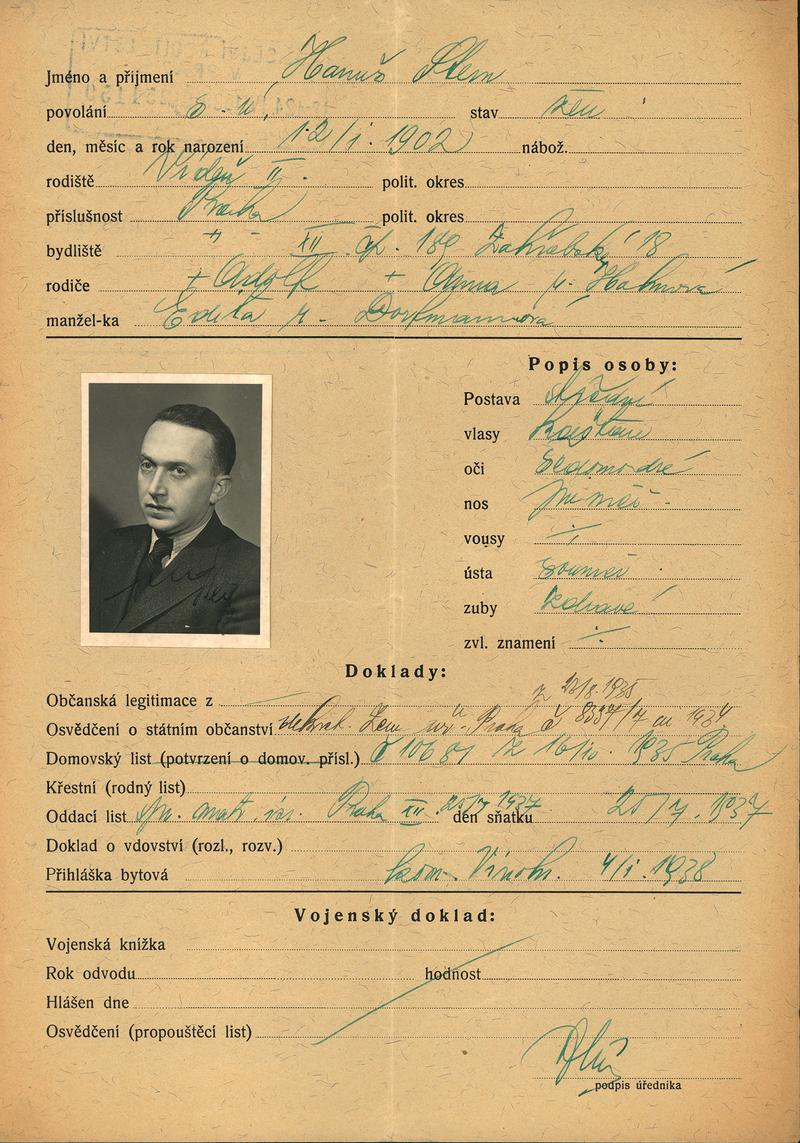 Jméno a přijmení Hanuš Stern
povolání s. ú. stav žen
den, měsíc a rok narození 12/I. 1902 nábož.
rodiště Vídeň II. polit. okres
příslušnost Praha polit. okres
bydliště " - XII čp. 189 Záhřebská 18
rodiče + Adolf + Anna r. Hahnová
manžel-ka Edita r. Dorfmannová
Popis osoby:
Postava střední
vlasy kaštan
oči šedomodré
nos
vousy ./.
ústa souměr.
zuby zdravé
zvl. znamení ÷
Doklady:
Občanská legitimace z
z 28/8. 1935
Osvědčení o státním občanství Zem. úř. Praha č 1934
Domovský list (potvrzení o domov. přísl.) č 10681 z 1935 Praha
Křestní (rodný list)
Oddací list Praha XII. 25/7 1937 den sňatku 25/7. 1937
Doklad o vdovství (rozl., rozv.)
Přihláška bytová kom. Vinohr. 4/I. 1938
Vojenský doklad:
Vojenská knížka
Rok odvodu hodnost
Hlášen dne
Osvědčení (propouštěcí list)
podpis úředníka